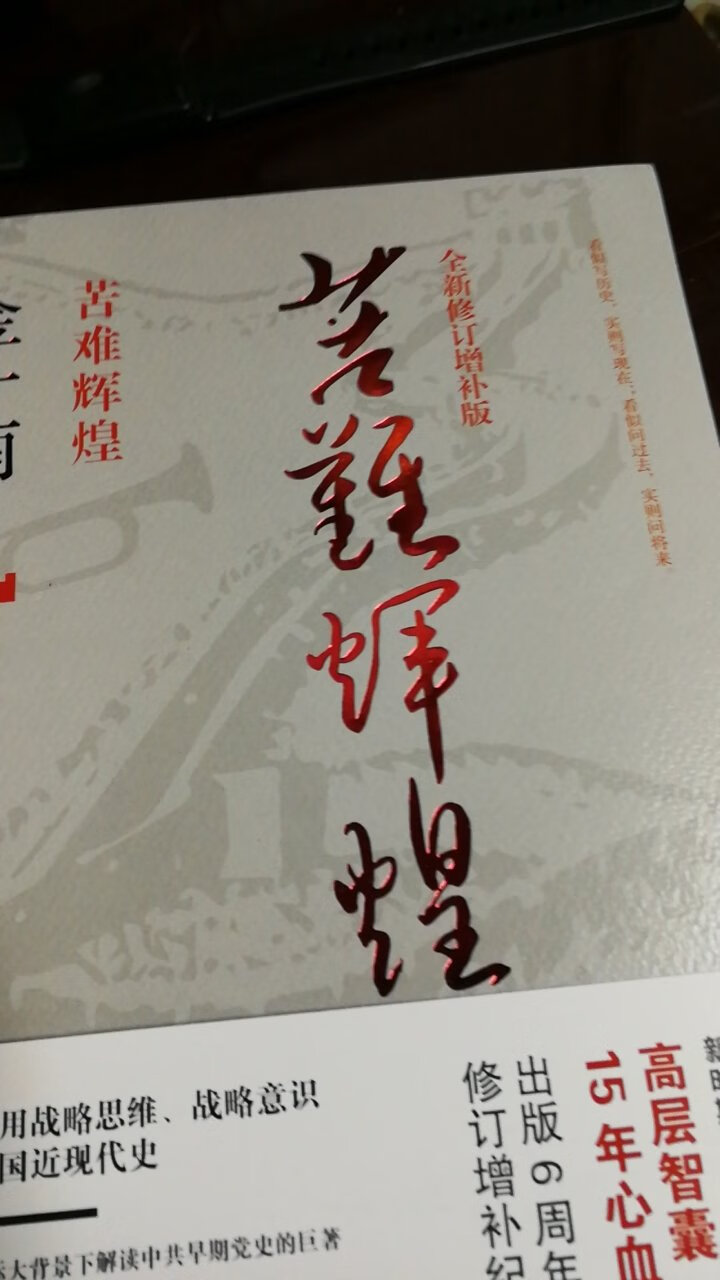 看似写历史，实则写现在；看似问过去，实则问将来
全新修订增补版
苦難輝煌
苦难辉煌
金一南
高层智囊
15年心血
出版6周年
修订增补纪
用战略思维、战略意识
国近现代史
大背景下解读中共早期党史的巨著